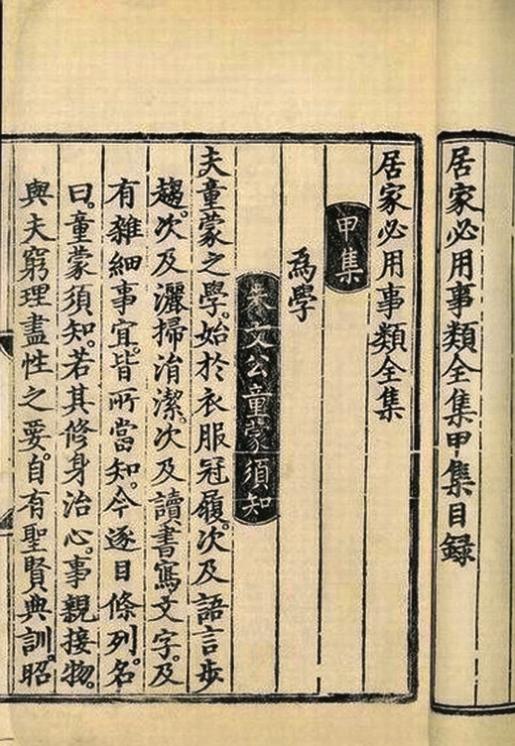 居家必用事類全集甲集目録
居家必用事類全集
甲集
為學
朱文公童蒙須知
夫童蒙之學。始於衣服冠履。次及語言步
趨。次及灑掃涓潔。次及讀書寫文字。及
有雜細事宜。皆所當知。今逐目條列。名
曰。童蒙須知。若其修身治心。事親接物。
與夫窮理盡性之要。自有聖賢典訓。昭